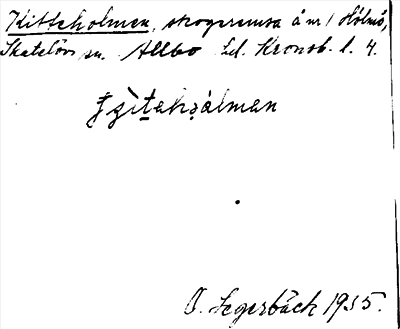 Kitteholmen, skogsremsa å nr 1 Hölmö,
Skatelövs sn. Allbo hd. Kronob. l. 4.
O. Segerbäck 1935.